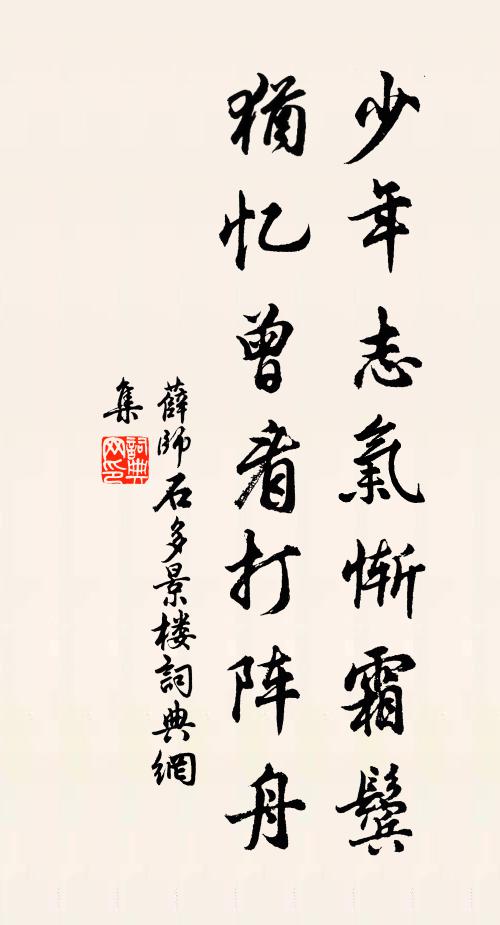 少年志氣惭霜鬓
猶忆曾看打阵舟
薛师石多景楼詞典網
集
詞典网印